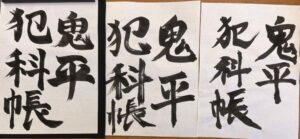 鬼平
犯科帳
鬼平
犯科帳
鬼平
犯科帳